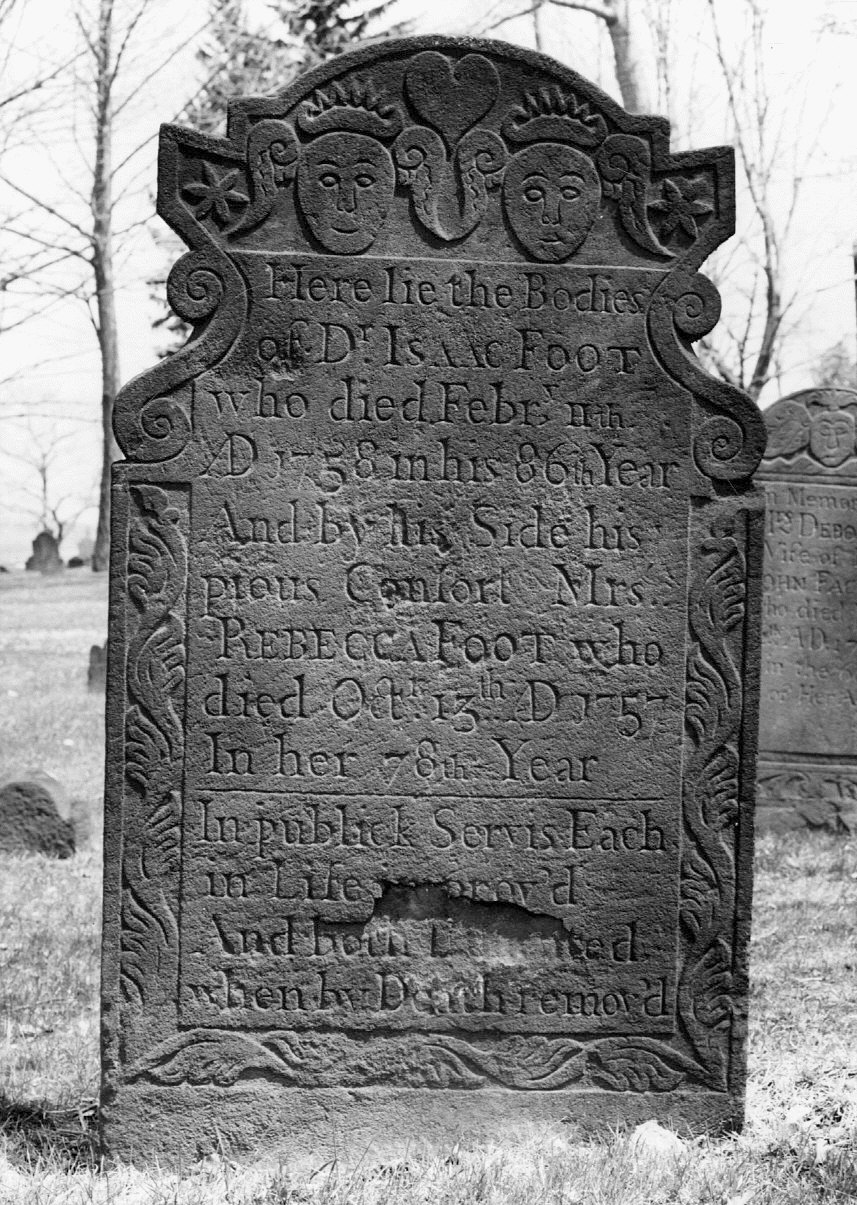 Here lie the Bodies
of Dr. ISAAC FOOT
who died Febry 11th
AD 1758 in his 86th Year
And by his Side his
pious Consort Mrs.
REBECCA FOOT who
died Octr. 13th AD 1757
In her 78th Year
In publick Servis Each
in Life
And both
when by Death remov'd
In Memor
DEBO
Wife of
JOHN
who died
AD. 17
in the
of Her A